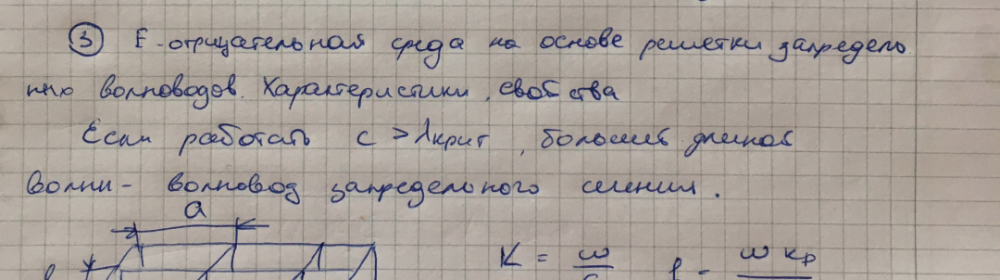 ③ Е-отрицательная среда на основе решетки запредель
ных волноводов. Характеристики, свойства
Если работать с > λкрит, большей длиной
волны - волновод запредельного сечения.
a
K = ω
ω кр